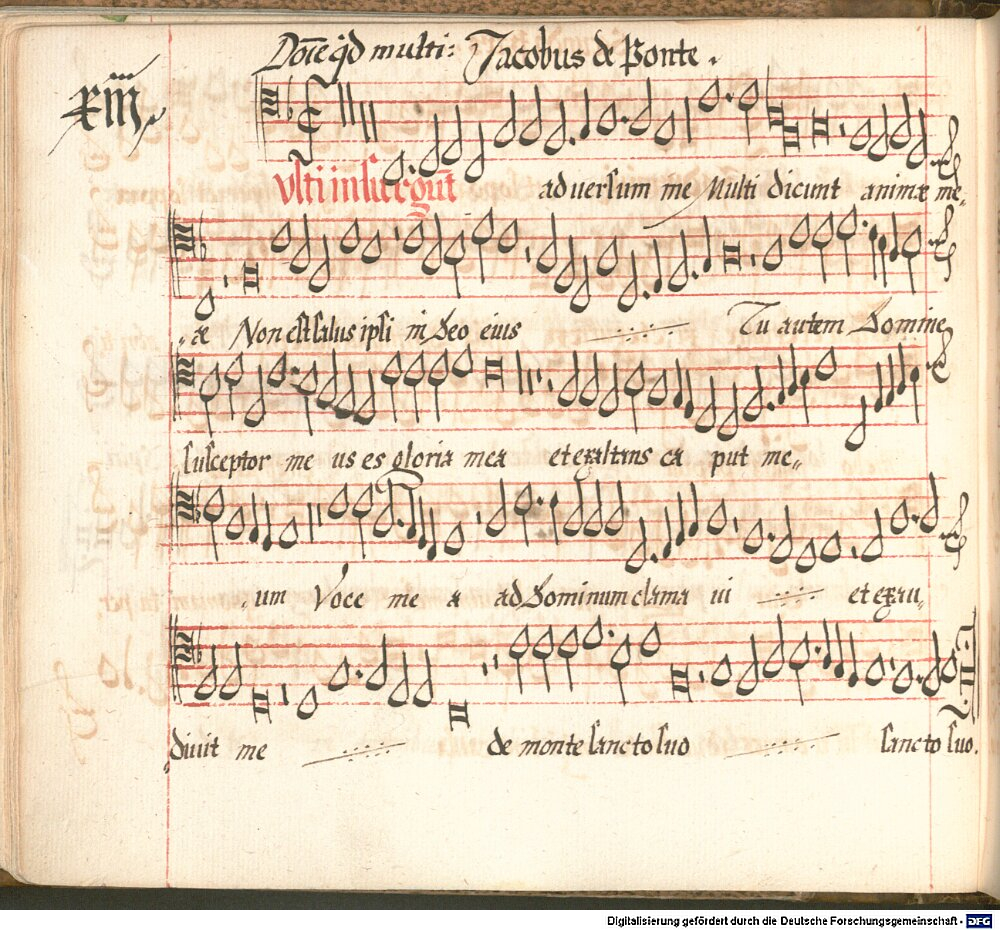 Dōie qd multi: Jacobus de Ponte.
xiiij
Vlti insurgūt adversum me Multi dicunt animæ me„
„æ Non est salus ipsi in deo eius Tu autem domine
susceptor me us es gloria mea et exaltans ca put me„
„um Voce me a ad dominum clama ui et exau„
„diuit me de monte sancto suo sancto suo.
Digitalisierung gefördert durch die Deutsche Forschungsgemeinschaft - DFG